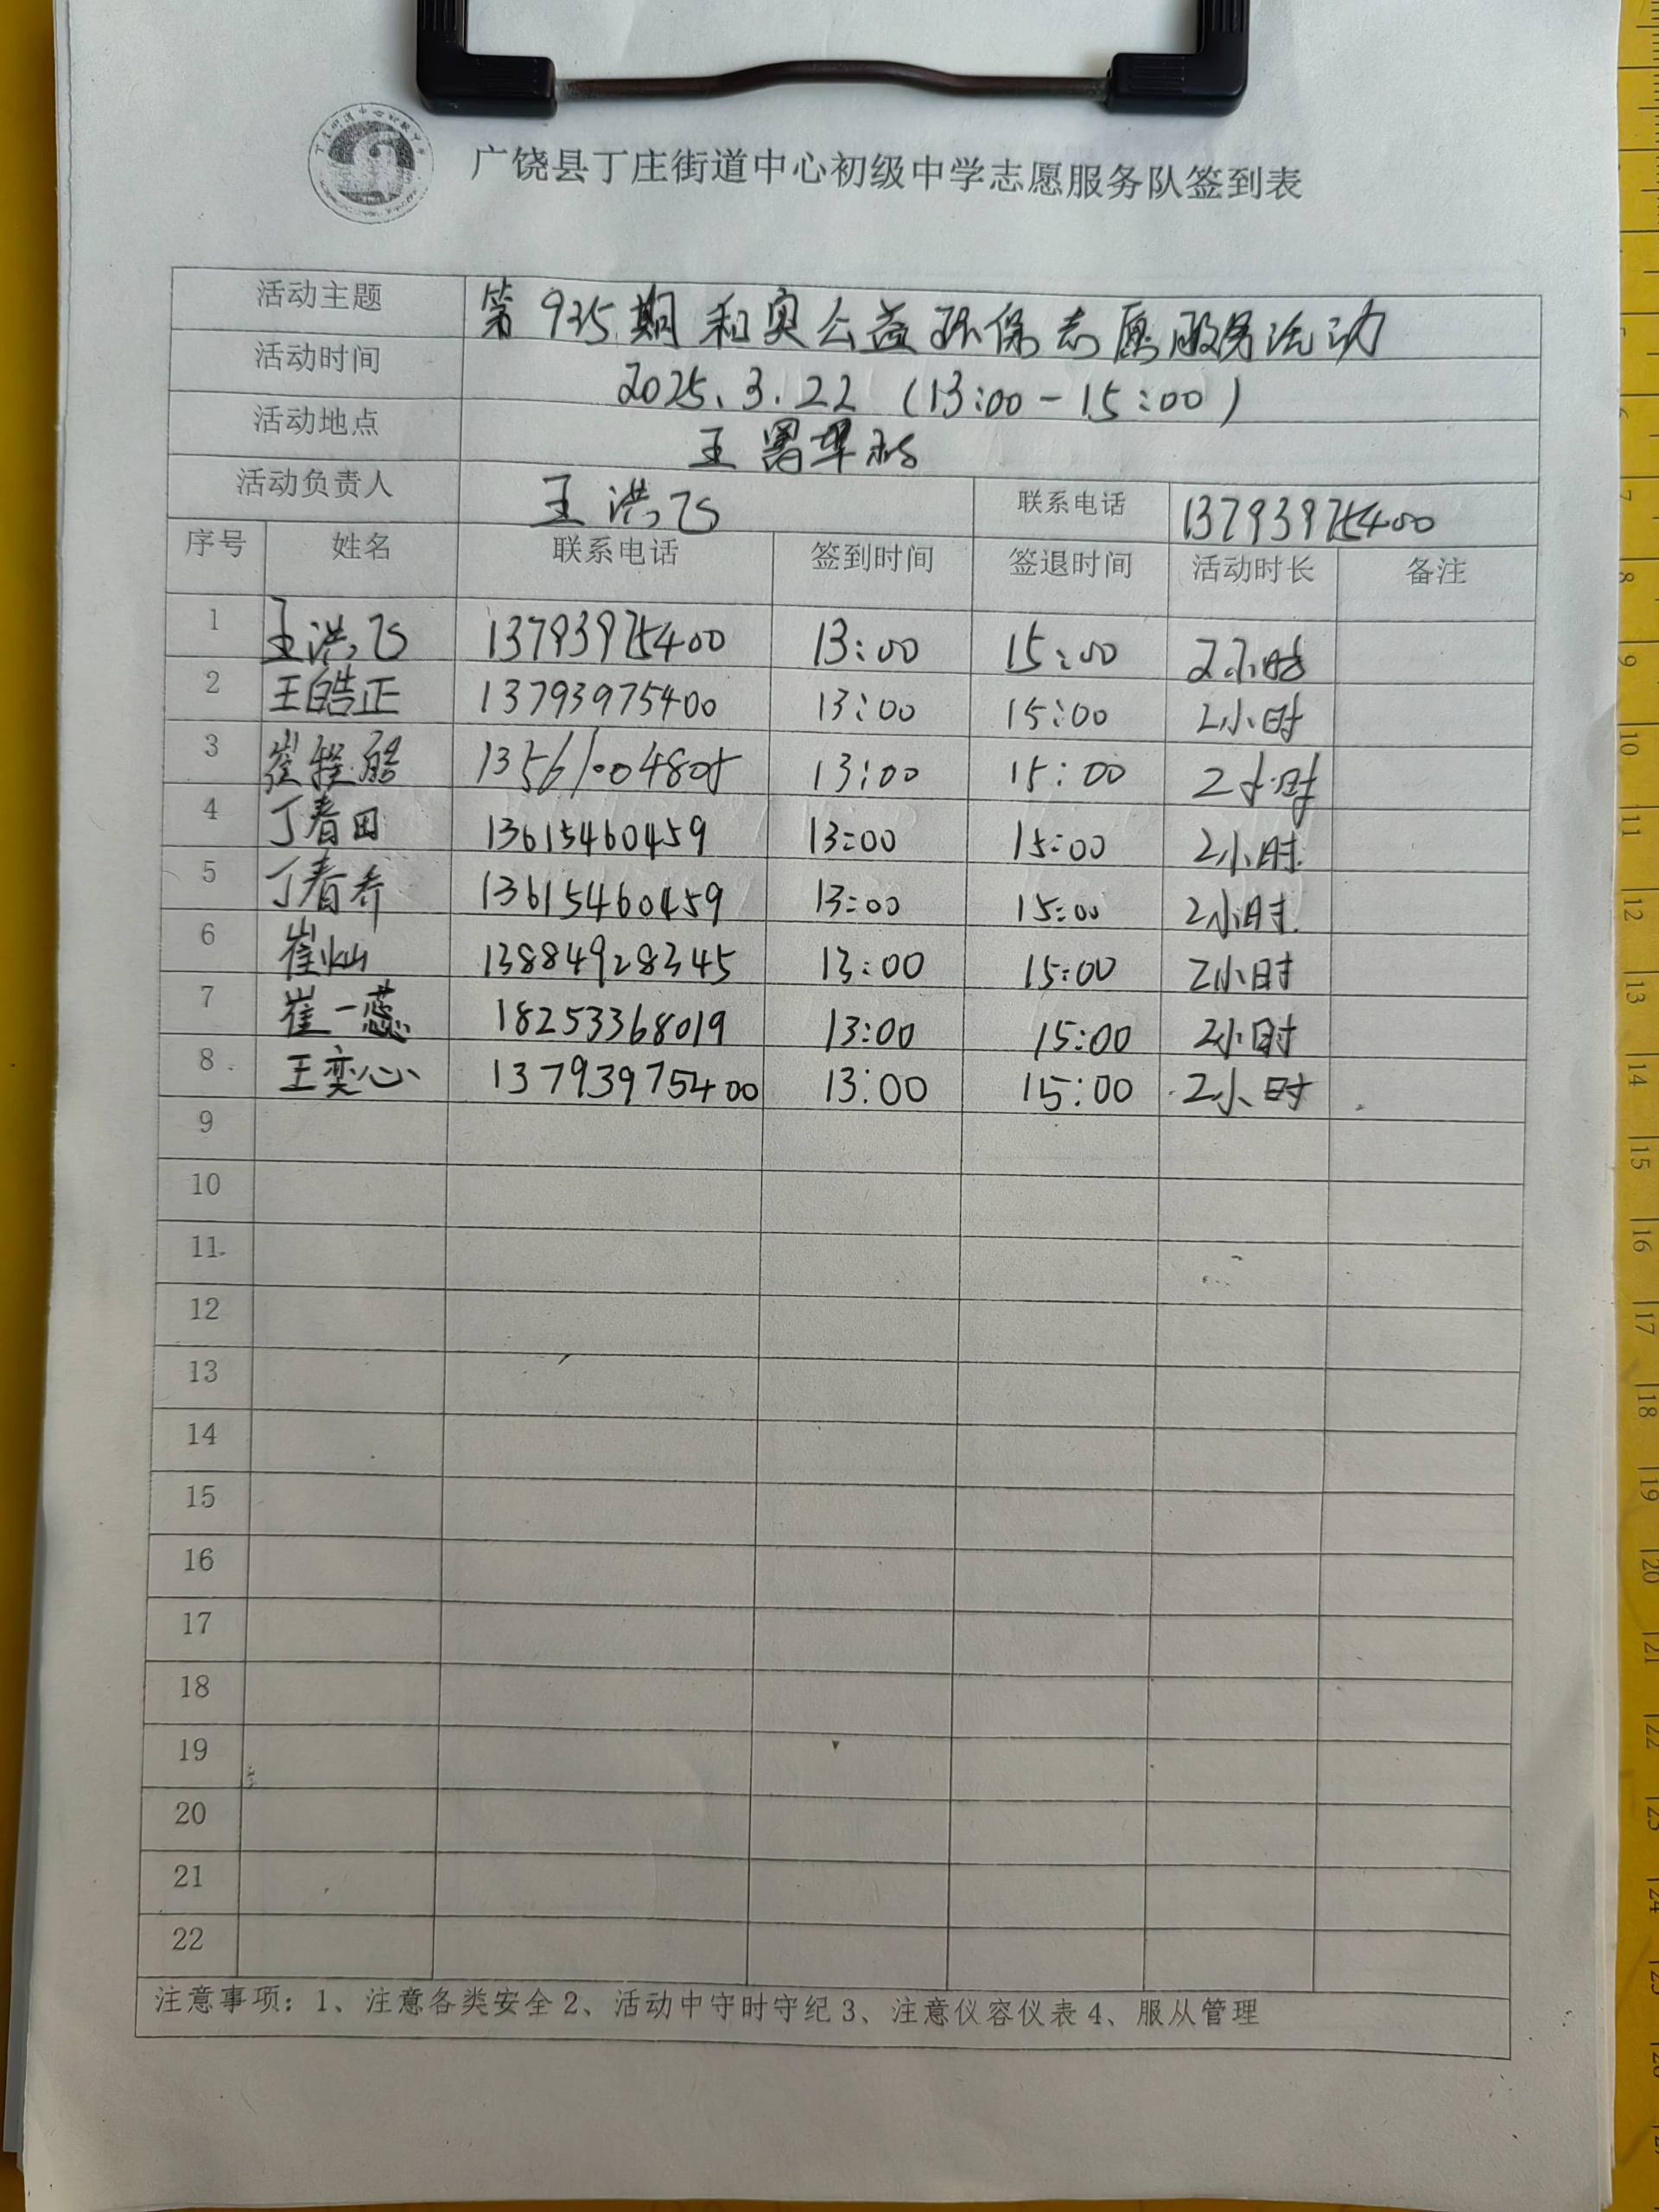 广饶县丁庄街道中心初级中学志愿服务队签到表
活动主题 第935期和奥公益环保志愿服务活动
活动时间 2025.3.22 (13:00-15:00)
活动地点 王署埠村
活动负责人 王洪飞 联系电话 13793975400
序号 姓名 联系电话 签到时间 签退时间 活动时长 备注
1 王洪飞 13793975400 13:00 15:00 2小时
2 王皓正 13793975400 13:00 15:00 2小时
3 崔 13561004805 13:00 15:00 2小时
4 丁春田 13615460459 13:00 15:00 2小时
5 丁春乔 13615460459 13:00 15:00 2小时
6 崔灿 13884928345 13:00 15:00 2小时
7 崔一蕊 18253368019 13:00 15:00 2小时
8 王奕心 13793975400 13:00 15:00 2小时
9
10
11
12
13
14
15
16
17
18
19
20
21
22
注意事项：1、注意各类安全2、活动中守时守纪3、注意仪容仪表4、服从管理
7
8
9
10
11
12
13
14
15
16
17
18
19
20
21
22
23
24